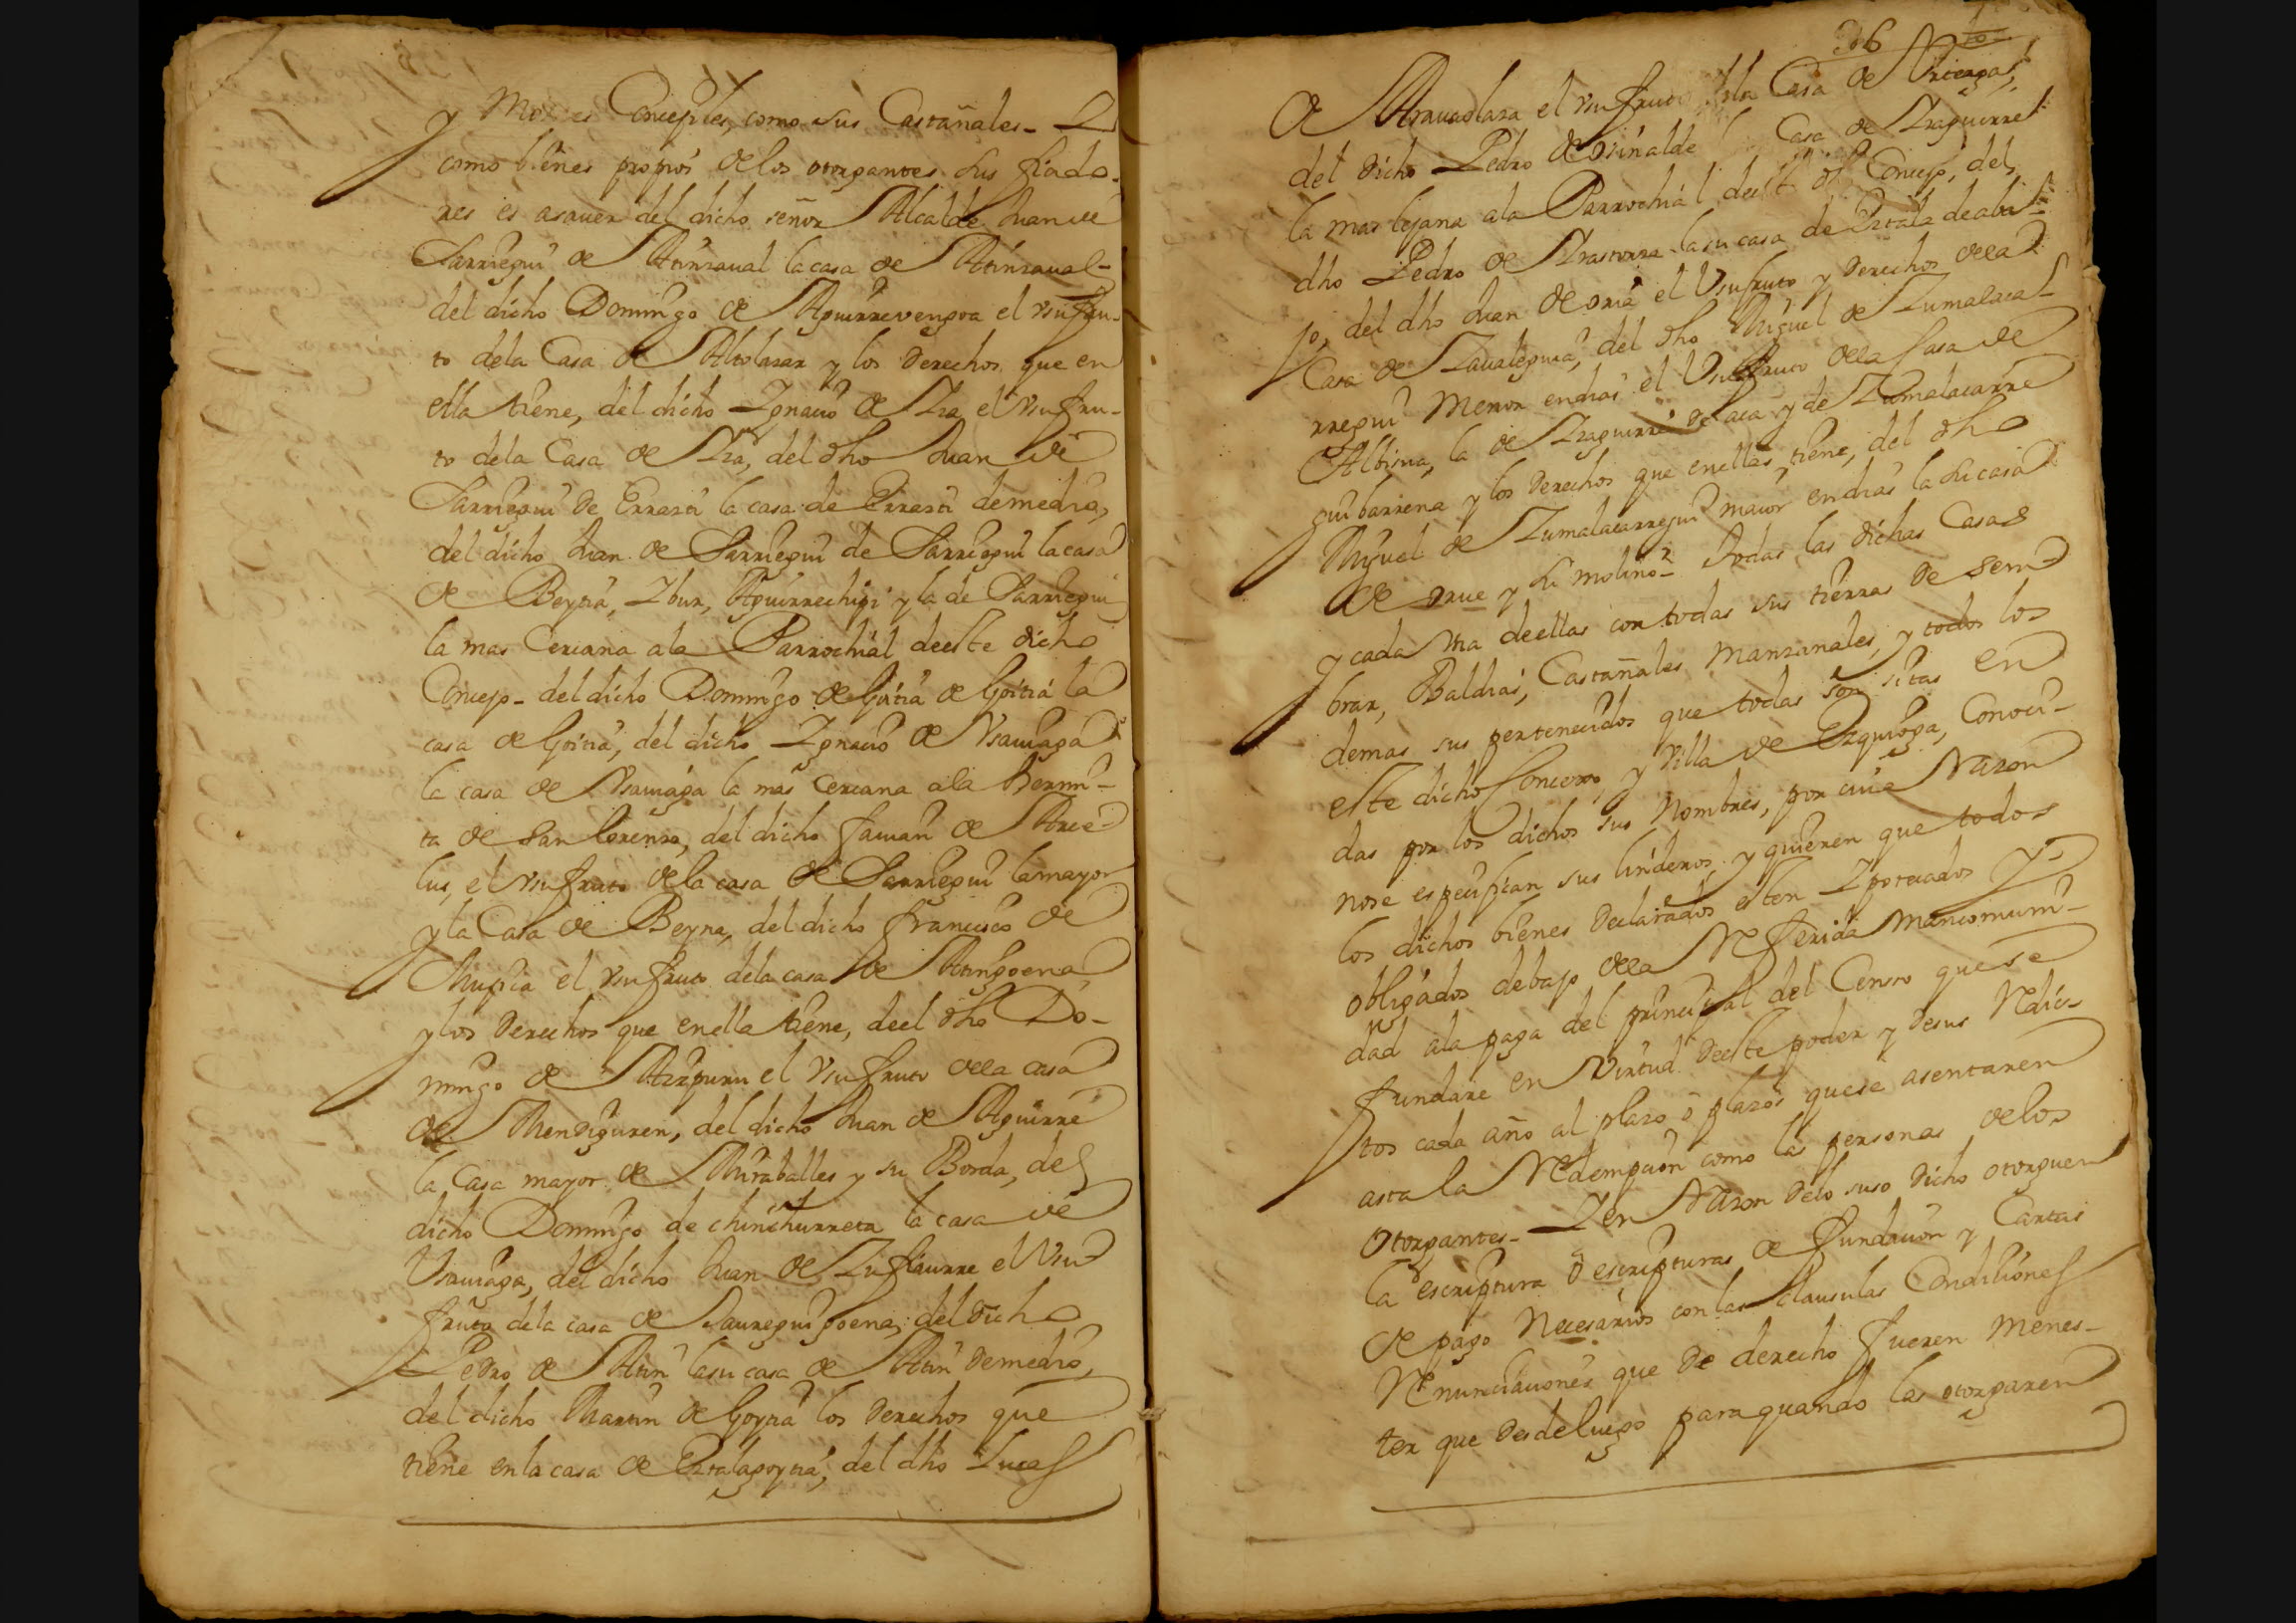 y Montes Concejiles, como sus Castañales_ Y
como bienes propios delos otorgantes sus fiado-
res es asauer del dicho señor Alcalde Juan de
Sarriegui de Atinzaual la casa de Atinzaual-
del dicho Domingo de Aguirrevengoa el vsufru-
to dela Casa de Altolazar y los derechos que en
ella tiene, del dicho Ygnacio de Yza el vsufru-
to dela Casa de Yza, del dho Juan de
Sarriegui de Errasti la casa de Errasti demedio,
del dicho Juan de Sarriegui de Sarriegui la casa
de Beytia, Ybur, Aguirrechigi y la de Sarriegui
la mas Cercana ala Parrochial deeste dicho
Concejo_ del dicho Domingo de Goitia de Goitia la
casa de Goitia, del dicho Ygnacio de Vsauiaga
la casa de Vsauiaga la mas Cercana ala Hermi-
ta de San Lorenzo, del dicho Fauian de Arce-
lus, el vsufruto dela casa de Sarriegui lamayor
y la Casa de Beyna, del dicho Francisco de
Mugica el vsufruto dela casa de Atingoena
y los derechos que enella tiene, deel dho Do-
mingo de Aizpuru el vsufruto dela casa
de Mendiguren, del dicho Juan de Aguirre
la Casa mayor de Miraballes y su Borda, del
dicho Domingo de chinchurreta la casa de
Vsauiaga, del dicho Juan de Insaurre el Vsu
fruto dela casa de Jaureguigoena, del dicho
Pedro de Atin lasu casa de Atin demedio,
del dicho Martin de Goytia los derechos que
tiene enla casa de Eztalagoytia, del dho Lucas
36
de Arauaolaza el vsufruto dela Casa de Vrteaga,
del dicho Pedro de Oria Casa de Yzaguirre
la mas lejana ala Parrochial deeste dho Concejo, del
dho Pedro de Yrastorza lasu casa de Eztala deaba-
jo, del dho Juan de oria el Vsufruto y derechos dela
Casa de Zaualeguia, del dho Miguel de Zumalaca-
rregui Menor endias el Vsufruto dela Casa de
Albisua, la de Yzaguirre de aca y de Zumalacarre
gui barrena y los derechos que enellas tiene, del dho
Miguel de Zumalacarregui maior endias la su casa
de orue y su molino_ todas las dichas Casas
y cada vna deellas con todas sus tierras de sem
brar, Baldias, Castañales, Manzanales, y todos los
demas sus pertenecidos que todas son sitas en
este dicho Concejo y Villa de Ezquioga, Conoci-
das por los dichos sus Nombres, por cuia Razon
nose especifican sus linderos, y quieren que todos
los dichos bienes declarados esten Ypotecados y
obligados debajo dela Referida Mancomuni-
dad ala paga del principal del Censo que se
fundare en Virtud deeste poder y desus Redic-
tos cada año al plazo o plazos quese asentaren
asta la Redempcion como las personas delos
Otorgantes_ Y en Razon delo suso dicho otorguen
la escriptura o escripturas de Fundacion y Cartas
de pago Necesarios con las clausulas Condiciones
Renunciaciones que de derecho fueren menes-
ter que desdeluego paraquando las otorgaren